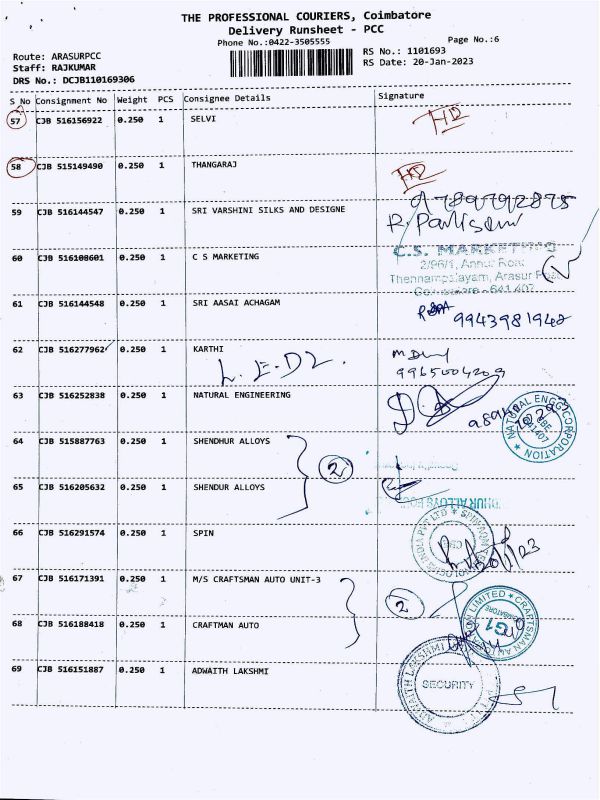 THE PROFESSIONAL COURIERS, Coimbatore
Delivery Runsheet - PCC
Phone No.:0422-3505555
Page No.:6
Route: ARASURPCC
RS No.: 1101693
Staff: RAJKUMAR
RS Date: 20-Jan-2023
DRS No.: DCJB110169306
S No Consignment No Weight PCS Consignee Details Signature
57 CJB 516156922 0.250 1 SELVI
58 CJB 515149490 0.250 1 THANGARAJ
9789792875
59 CJB 516144547 0.250 1 SRI VARSHINI SILKS AND DESIGNE
C.S. MARKETING
60 CJB 516108601 0.250 1 C S MARKETING
2/96/1, Annur Road
Thennampalayam, Arasur Post
Coimbatore - 641 407
61 CJB 516144548 0.250 1 SRI AASAI ACHAGAM
9943981942
62 CJB 516277962 0.250 1 KARTHI
9965004209
63 CJB 516252838 0.250 1 NATURAL ENGINEERING
NATURAL ENGG CORPORATION
64 CJB 515887763 0.250 1 SHENDHUR ALLOYS
2
65 CJB 516205632 0.250 1 SHENDUR ALLOYS
66 CJB 516291574 0.250 1 SPIN
67 CJB 516171391 0.250 1 M/S CRAFTSMAN AUTO UNIT-3
2
68 CJB 516188418 0.250 1 CRAFTMAN AUTO
G1
69 CJB 516151887 0.250 1 ADWAITH LAKSHMI
ADWAITH LAKSHMI
SECURITY